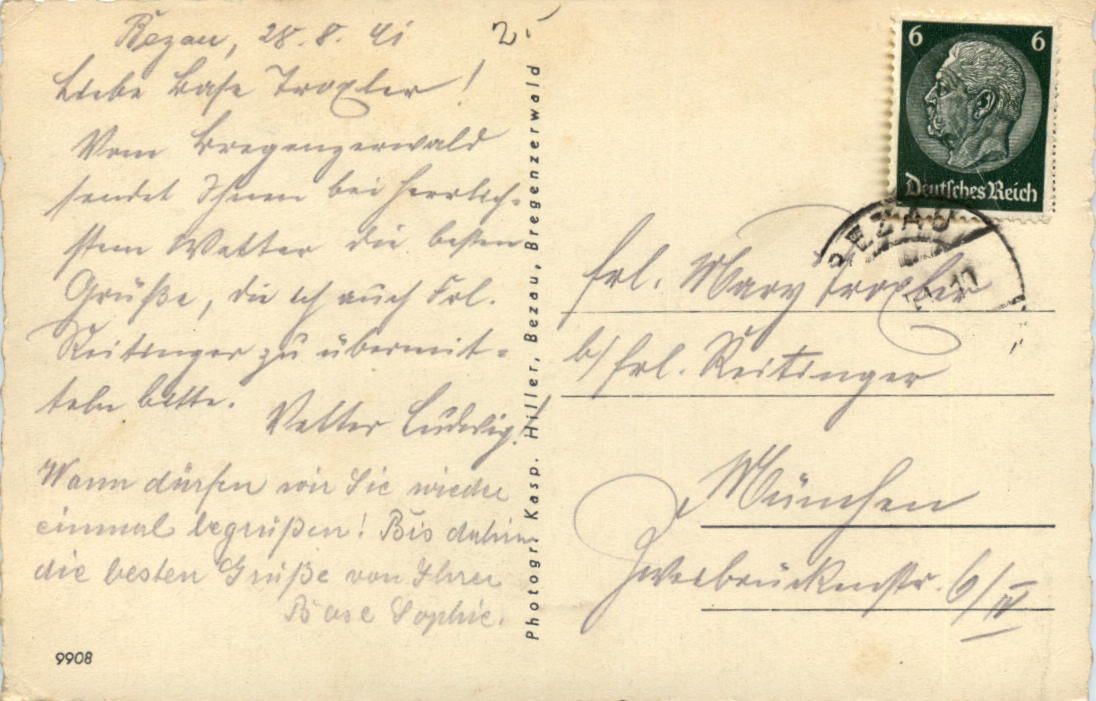 Bezau, 28.8.41
2.-
Liebe Base Troxler!
Vom Bregenzerwald
sendet Ihnen bei herrlich-
stem Wetter die besten
Grüße, die ich auch Frl.
Reitinger zu übermit-
teln bitte.
Vetter Ludwig!
Wann dürfen wir Sie wieder
einmal begrüßen! Bis dahin
die besten Grüße von Ihrer
Base Sophie.
9908
Photogr. Kasp. Hiller, Bezau, Bregenzerwald
6 6
Deutsches Reich
BEZAU
Frl. Mary Troxler
b/ Frl. Reitinger
München
Zweibrückenstr. 6/IV